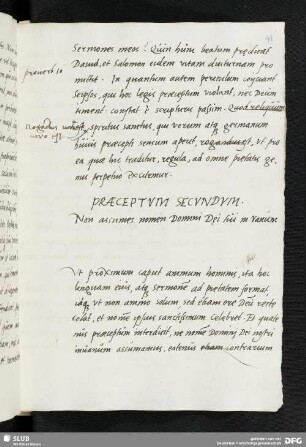 41
Sermones meos? Quin hunc beatum prædicat
Dauid, et Salomon eidem vitam diuturnam pro
prouerb 10
mittit. In quantum autem periculum coniiciant
seipsos, qui hoc legis præceptum violant, nec Deum
timent: constat è scripturis passim. Quod reliquum
est
spiritus sanctus, qui verum atq germanum
huius præcepti sensum aperit, rogandus est, vt pro
ea quæ hic traditur, regula, ad omne pietatis ge
nus perpetuo excitemur.
PRÆCEPTVM SECVNDVM.
Non assumes nomen Domini Dei tui in vanum
Vt proximum caput animum hominis, ita hoc
linguam eius, atq sermonem ad pietatem format
vt non animo solum, sed etiam ore Deum recte
colat, et nomen ipsius sanctissimum celebret. Et quate
nus præceptum interdicit, ne nomen Domini Dei nostri
in uanum assumamus, eatenus etiam contrarium
SLUB
DFG